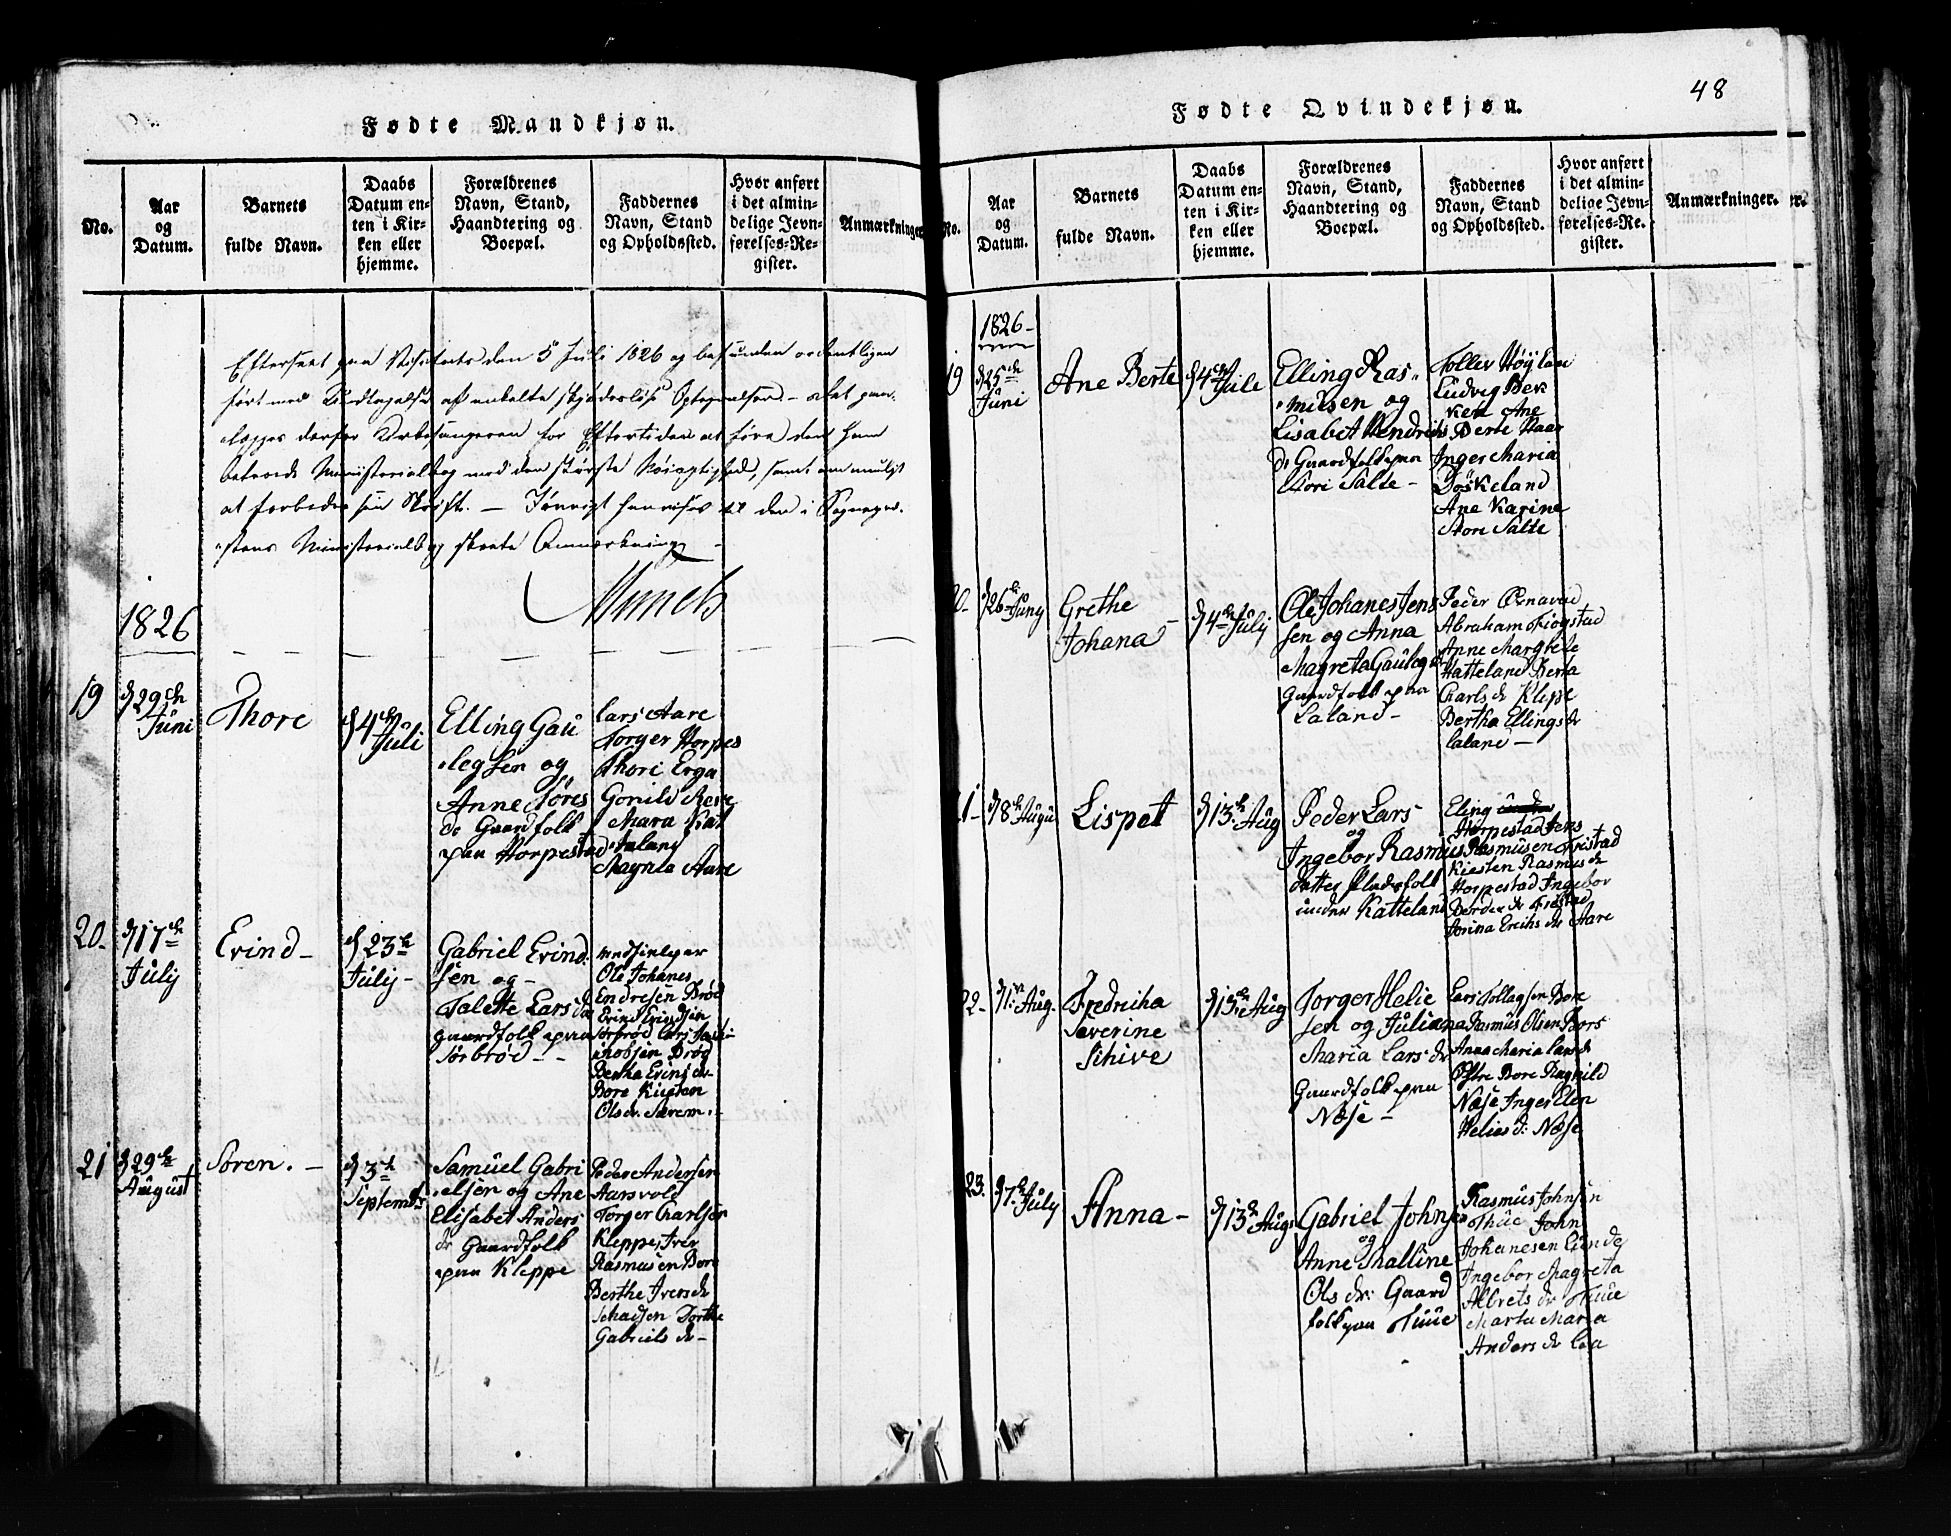 Fødte Mandkjøn.
No.
Aar
og
Datum.
Barnets
fulde Navn.
Daabs
Datum en-
ten i Kir-
ken eller
hjemme.
Forældrenes
Navn, Stand,
Haandtering og
Boepæl.
Faddernes
Navn, Stand
og Opholdssted.
Hvor anført
i det almin-
delige Jevn-
førelses-Re-
gister.
Anmærkninger
Efterseet paa Visitats den 5 Juli 1826 og befunden ordentligen
ført med Undtagelse af enkelte skjødesløse Optegnelser. - Det paa-
lægges derfor Kirkesangeren for Eftertiden at føre den ham
betroede Ministerialbog med den største Nøiagtighed, samt om muligt
at forbedre sin Skrift. - Iøvrigt henvises til den i Sognepræ-
stens Ministerialbog skrevne Anmærkning
Munch
1826
19
d 29de
Juni
Thore
d 4de
Juli
Elling Gau
legsen og
Anne Tores
dr Gaardfolk
paa Horpestad
Lars Aare
Torger Horpes
Thori Erga
Gonild Reve
Mara Kat
Magnla Aare
20.
d 17de
Julij
Evind -
d 23de
Julij -
Gabriel Evind
sen og -
Talette Lars dr
gaardfolk paa
Sørbrød - -
Ole Johanes
Endresen Brød
Evind Evindsen
Sørbrød Lars Jac
inobsen Brød
Bertha Evins dr
Bore Kirsten
Ols dr. Særem. -
21
d 29de
August
Soren. -
d 3de
Septembr
Samuel Gabri
elsen og Ane
Elisabet Anders
dr Gaardfolk
paa Kleppe
Peder Andersen
Aarsvold
Torger Carlsen
Kleppe, Iver
Rasmusen Bore
Berthe Ivers dr
Dorthe
Gabriels dr -
Fødte Qvindekjøn.
48
No.
Aar
og
Datum.
Barnets
fulde Navn.
Daabs
Datum en-
ten i Kir-
ken eller
hjemme.
Forældrenes
Navn, Stand,
Haandtering og
Boepæl.
Faddernes
Navn, Stand
og Opholdssted.
Hvor anført
i det almin-
delige Jevn-
førelses-Re-
gister.
Anmærkninger.
1826-
19
d 25de
Juni
Ane Berte
d 4de
Juli
Elling Ras
musen og
Lisabet Hendrichs
dr Gaardfolk paa
Stori Salte -
Toller Høyland
Ludvig Bek
ken Ane
Berte Haar
Inger Maria
Døskeland
Ane Karine
Store Salte
20-
d 26de Juny
Grethe
Johana -
d 4de Julij
Ole Johanes Jens
sen og Anna
Magreta Gaulegs dr
Gaardfolk paa
Laland -
Peder Ørnavad
Abraham Tiøgstad
Anne Margrete
Hatteland Berta
Carls dr Kleppe
Bertha Ellings dr
Laland -
21-
d 8de Augu
Lispet
d 13de Aug
Peder Lars
og
Ingebor Rasmus
datter Pladsfolk
under Katteland
Eling
Horpestad Jens
Rasmusen Friestad
Kirsten Rasmus dr
Horpestad Ingebor
Peders dr Friestad
Jorina Erichs dr Aare
22-
d 1te Aug.
Fredricha
Severine
Schive
d 13de Aug
Torger Helie
sen og Juliana
Maria Lars dr
Gaardfolk paa
Næse -
Lars Tollagsen Bore
Rasmus Olsen Bors
Anna Maria Lars dr
Østre Bore Ragnild
Næse Inger Elen
Helies dr Næse
23.
d 7de Julij
Anna -
d 13de Aug
Gabriel Johnsen
og
Anne Malline
Ols dr: Gaard
folk paa Tiue
Rasmus Johnsen
Thue John
Johanesen Lunde
Ingebor Magreta
Albrets dr Thue
Marta Maria
Anders dr Lea